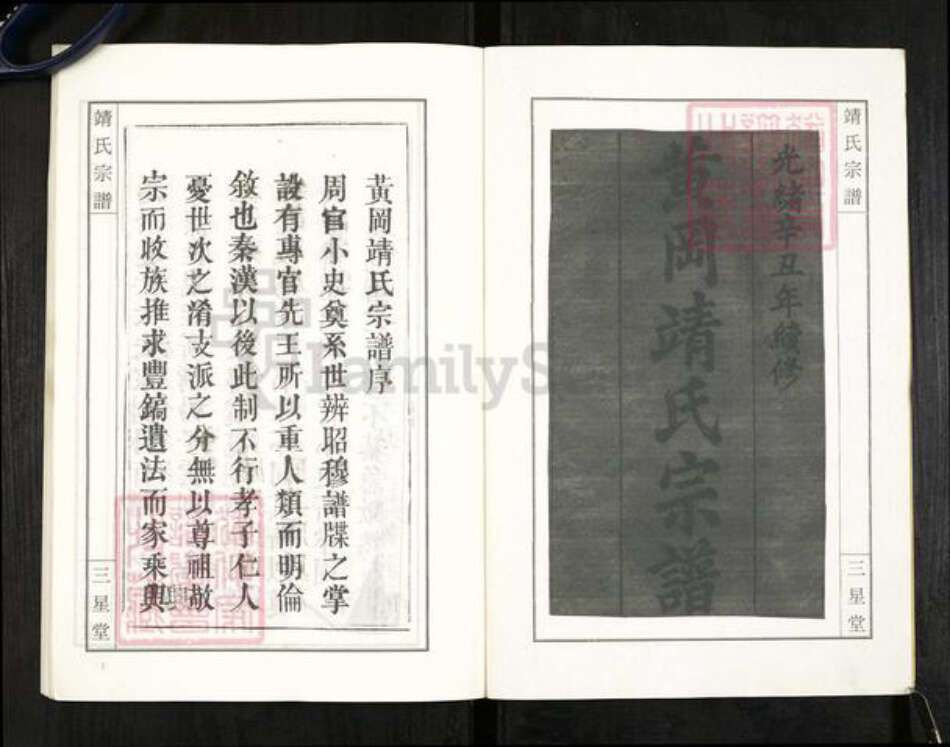 靖氏宗譜
光緒辛丑年續修
黃岡靖氏宗譜
三星堂
靖氏宗譜
黃岡靖氏宗譜序
周官小史奠系世辨昭穆譜牒之掌
設有專官先王所以重人類而明倫
敘也秦漢以後此制不行孝子仁人
憂世次之淆支派之分無以尊祖敬
宗而收族推求豐鎬遺法而家乘興
三星堂
FamilyS